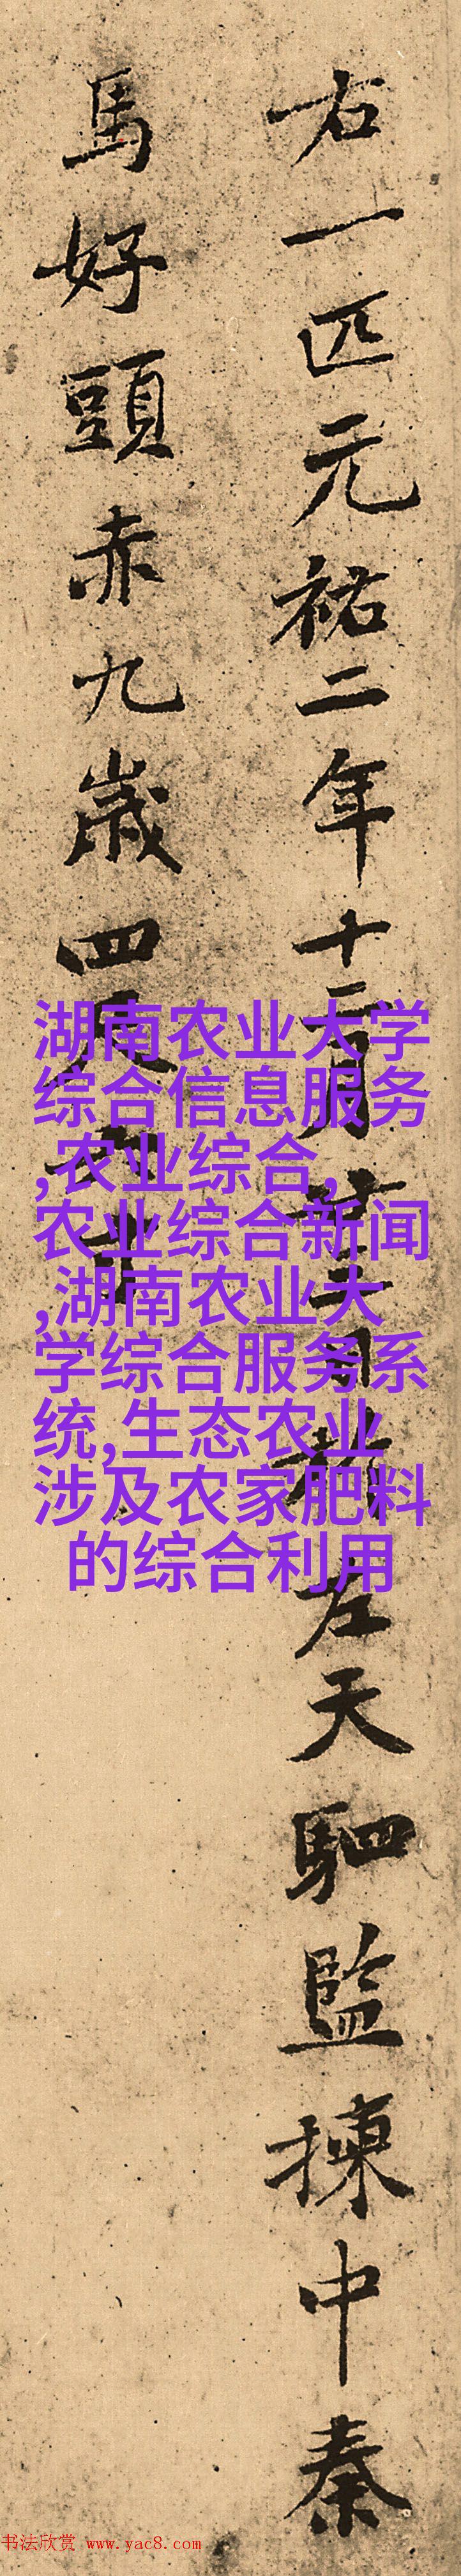 右一匹元祐二年十二月廿三日於左天駟監揀中秦
馬好頭赤九歲四尺六寸
湖南农业大学
综合信息服务
,农业综合,
农业综合新闻
,湖南农业大
学综合服务系
统,生态农业
涉及农家肥料
的综合利用
书法欣赏 www.yac8.com